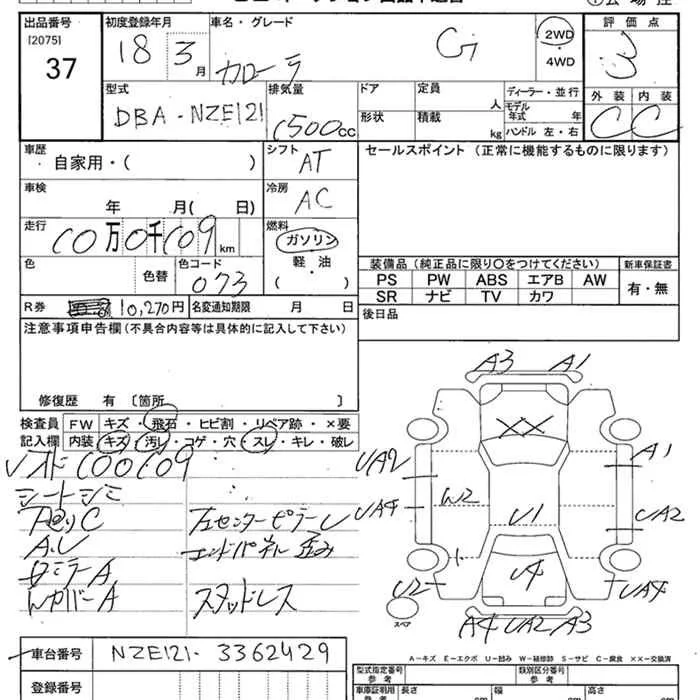 出品番号 初度登録年月 車名・グレード 2WD 評価点
[2075] 18 3月 カローラ G ・ 3
37 4WD
型式 排気量 ドア 定員 ディーラー・並行 外装 内装
DBA-NZE121 1500cc 人 モデル年式 年 C C
形状 積載 kg ハンドル 左・右
車歴 シフト セールスポイント (正常に機能するものに限ります)
自家用・( ) AT
車検 冷房
年 月( 日) AC
走行 燃料
10万0千109km ガソリン
軽・油
色 色替 色コード 073 ( )
装備品 (純正品に限り○をつけてください) 新車保証書
PS PW ABS エアB AW 有・無
SR ナビ TV カワ
R券 10,270円 名変通知期限 月 日 後日品
注意事項申告欄 (不具合内容等は具体的に記入して下さい)
修復歴 有 〔箇所 〕
検査員 FW キズ・飛石・ヒビ割・リペア跡・×要
記入欄 内装 キズ・汚レ・コゲ・穴・スレ・キレ・破レ
100109
シートシミ
左センターピラーU
A.U エンドパネル歪み
スタッドレス
A3 A1
XX
UA2 A1
UA4 W2 U1 UA2
U2 U4 UA4
スペア
A4 UA2 A3
A-キズ E-エクボ U-凹み W-補修跡 S-サビ C-腐食 ××-交換済
車台番号 NZE121-3362429
登録番号
型式指定番号 参考 類別区分番号 参考
車庫証明用 参考 長さ cm 幅 cm 高さ cm